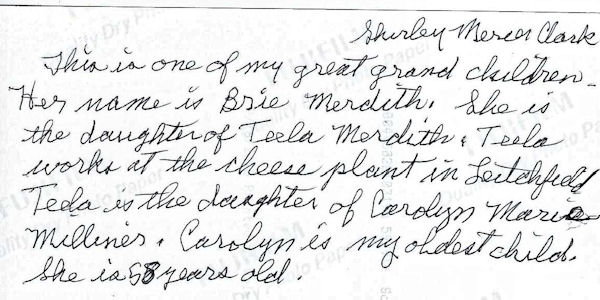 Shirley Mercer Clark
This is one of my great grand children.
Her name is Brie Merdith. She is
the daughter of Teela Merdith. Teela
works at the cheese plant in Leitchfield
Teela is the daughter of Carolyn Marie
Milliner. Carolyn is my oldest child.
She is 58 years old.